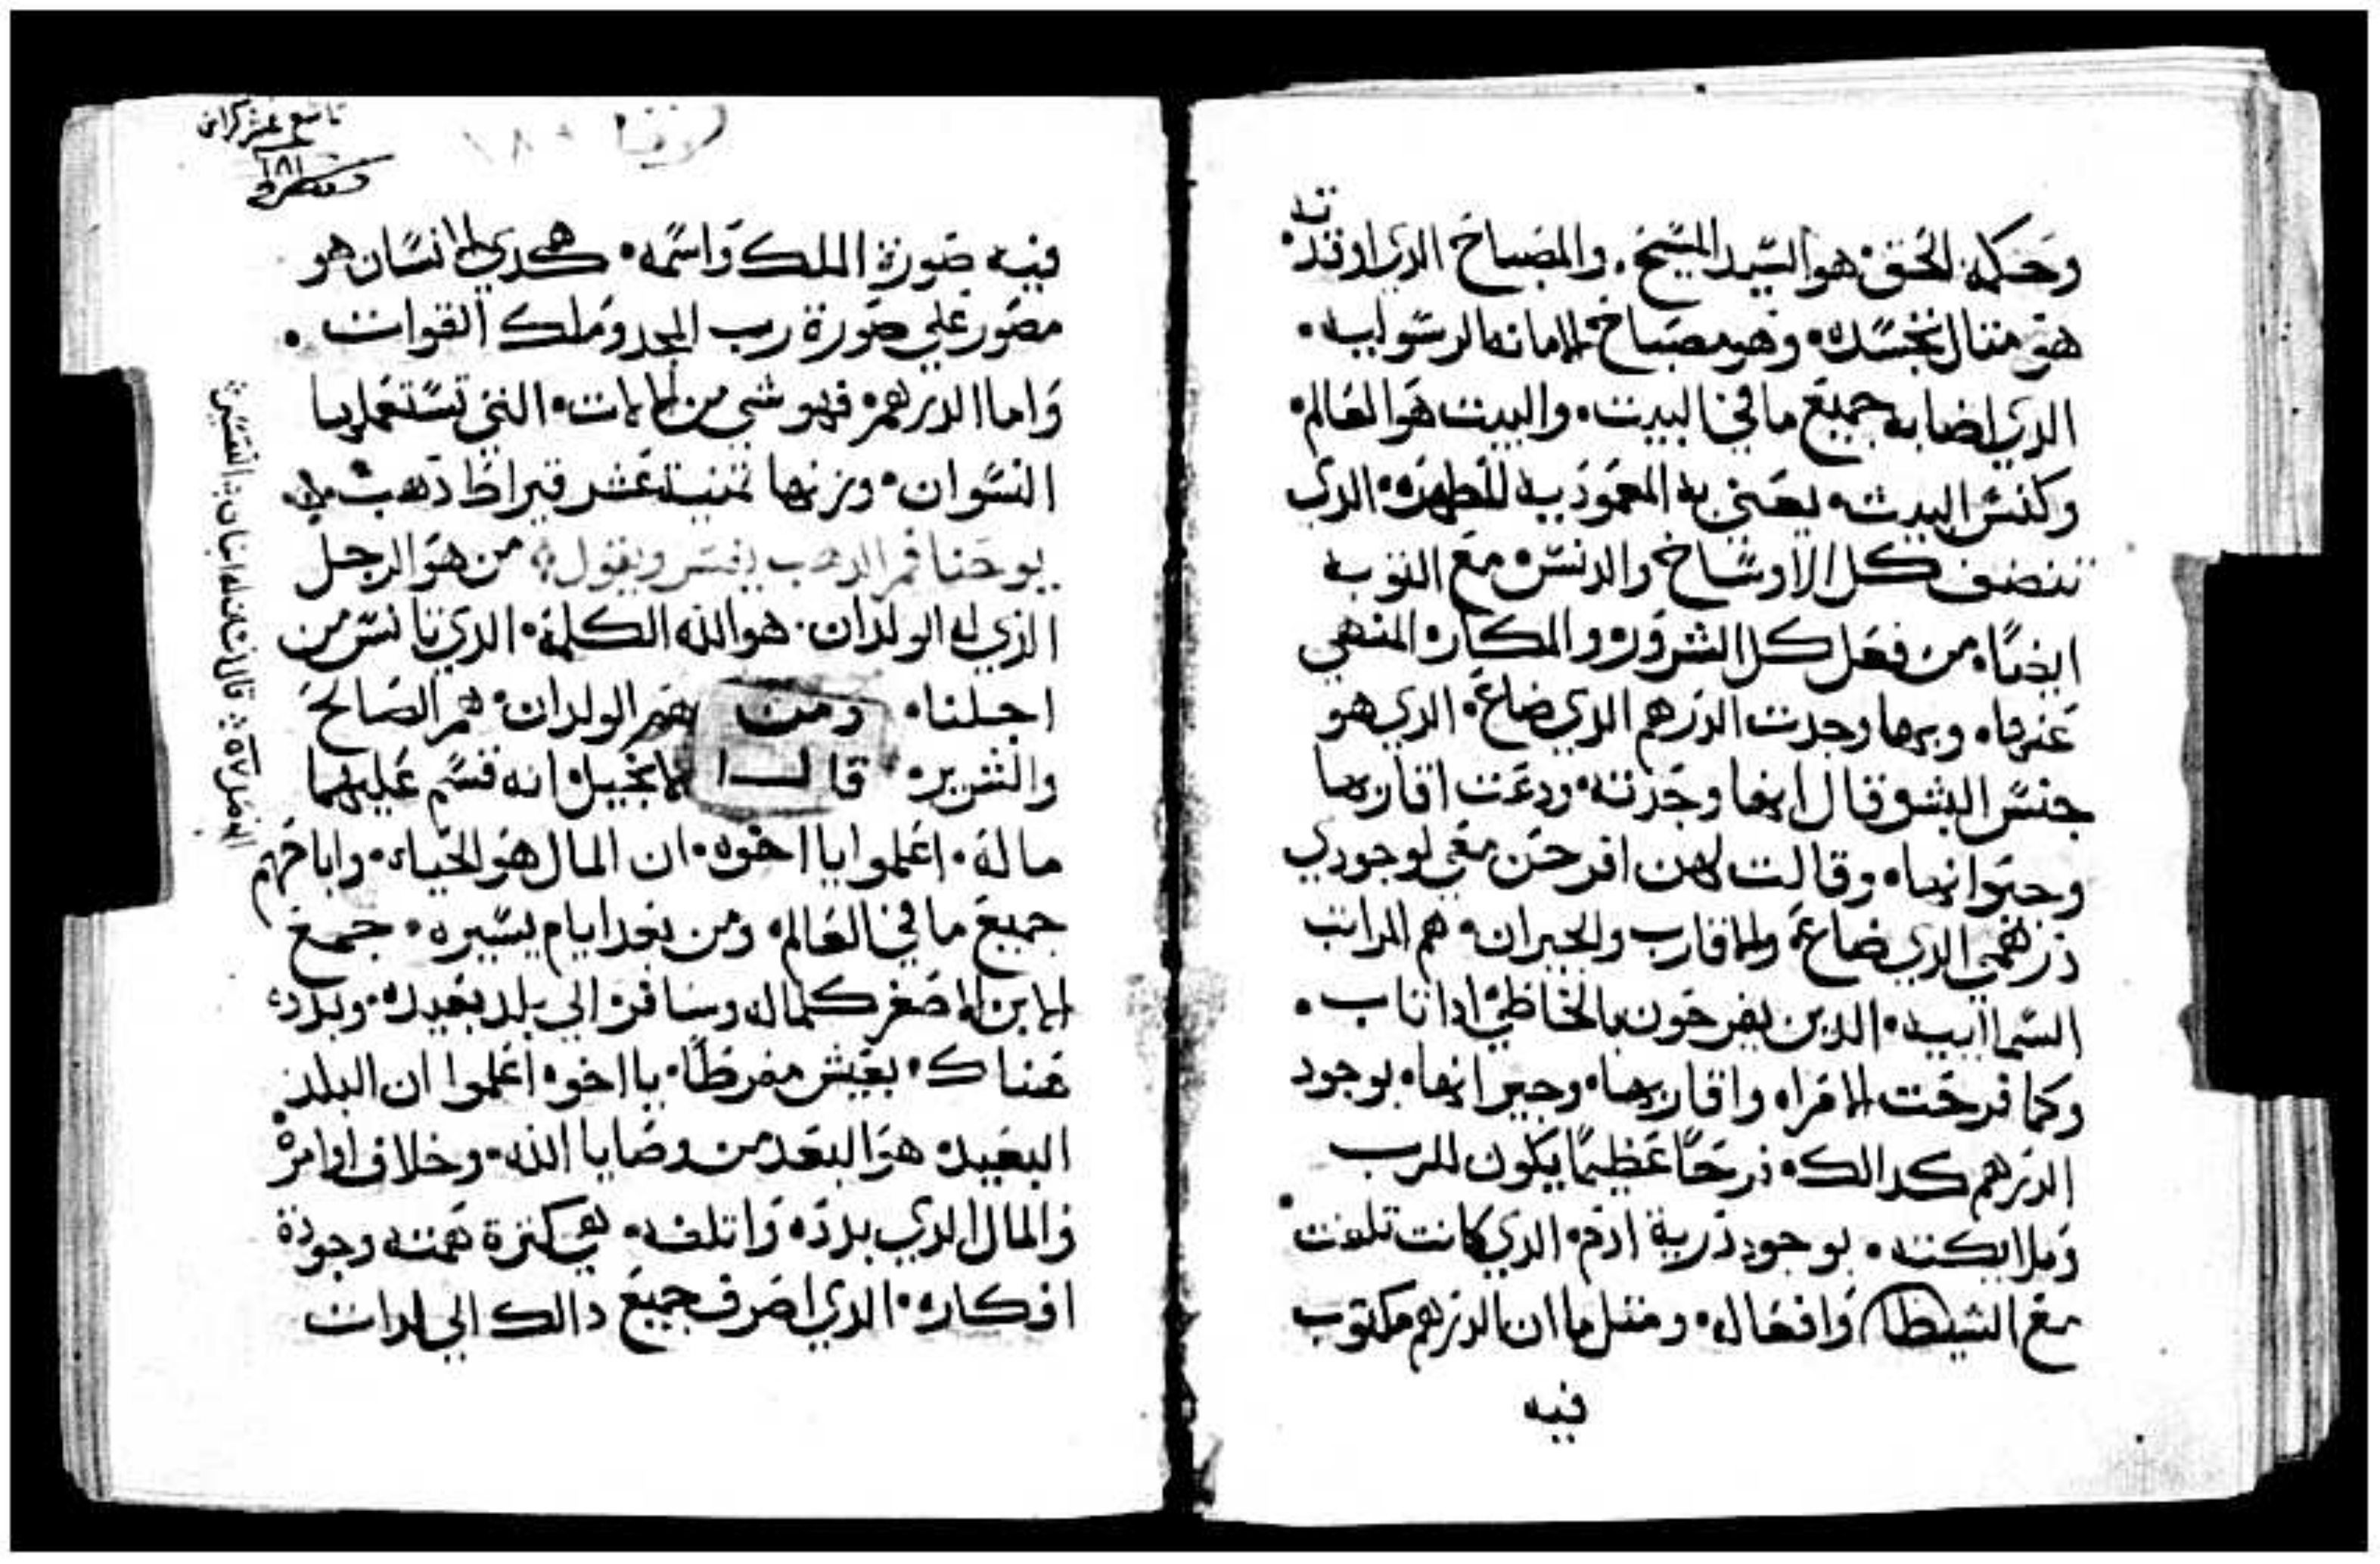 وحكمة الحق هو السيد المسيح . والمصباح الدي اوقدته
هو مثال تجسده وهو مصباح الامانه الرسوليه .
الدي اضا به جميع ما في البيت . والبيت هو العالم
وكنس البيت يعني به المعموديه المطهره الدي
تنضف كل الاوساخ والدنس مع التوبه
ايضا من فعل كل الشرور والمكاره المنهي
عنها وبها وجدت الدرهم الدي ضاع الدي هو
جنس البشر قال انها وجدته ودعت اقاربها
وجيرانها وقالت لهن افرحن معي لوجودي
درهمي الدي ضاع والاقارب والجيران هم المراتب
السماايه الدين يفرحون بالخاطي ادا تاب .
وكما فرحت الامراه واقاربها وجيرانها بوجود
الدرهم كدالك فرحا عظيما يكون للرب
وملايكته بوجود درية ادم الدي كانت تلفت
مع الشيطان وافعاله ومثل ما ان الدرهم مكتوب
فيه
تاسع عشر كراس
١٨١
لوقا ١٨٠
فيه صورة الملك واسمه هكدي الانسان هو
مصور علي صورة رب المجد وملك القوات .
واما الدرهم فهو شي من التي تستعملها
النسوان وزنها تمنية عشر قيراط دهب
يوحنا فم الدهب يفسر ويقول من هو الرجل
الذي له الولدان هو الله الكلمة الدي تانس من
اجلنا ومن هم الولدان هم الصالح
والشرير قال الانجيل انه قسم عليهما
ماله . اعلموا يا اخوه ان المال هو الحياه واباحهم
جميع ما في العالم ومن بعد ايام يسيره جمع
الابن الاصغر كلماله وسافر الي بلد بعيده وبدد
هناك بعيش مفرطا يا اخوه اعلموا ان البلد
البعيده هو البعد من وصايا الله وخلاف اوامره
والمال الدي بدده واتلفه هي كترة همته وجودة
افكاره الدي اصرف جميع دالك الي
الفصل